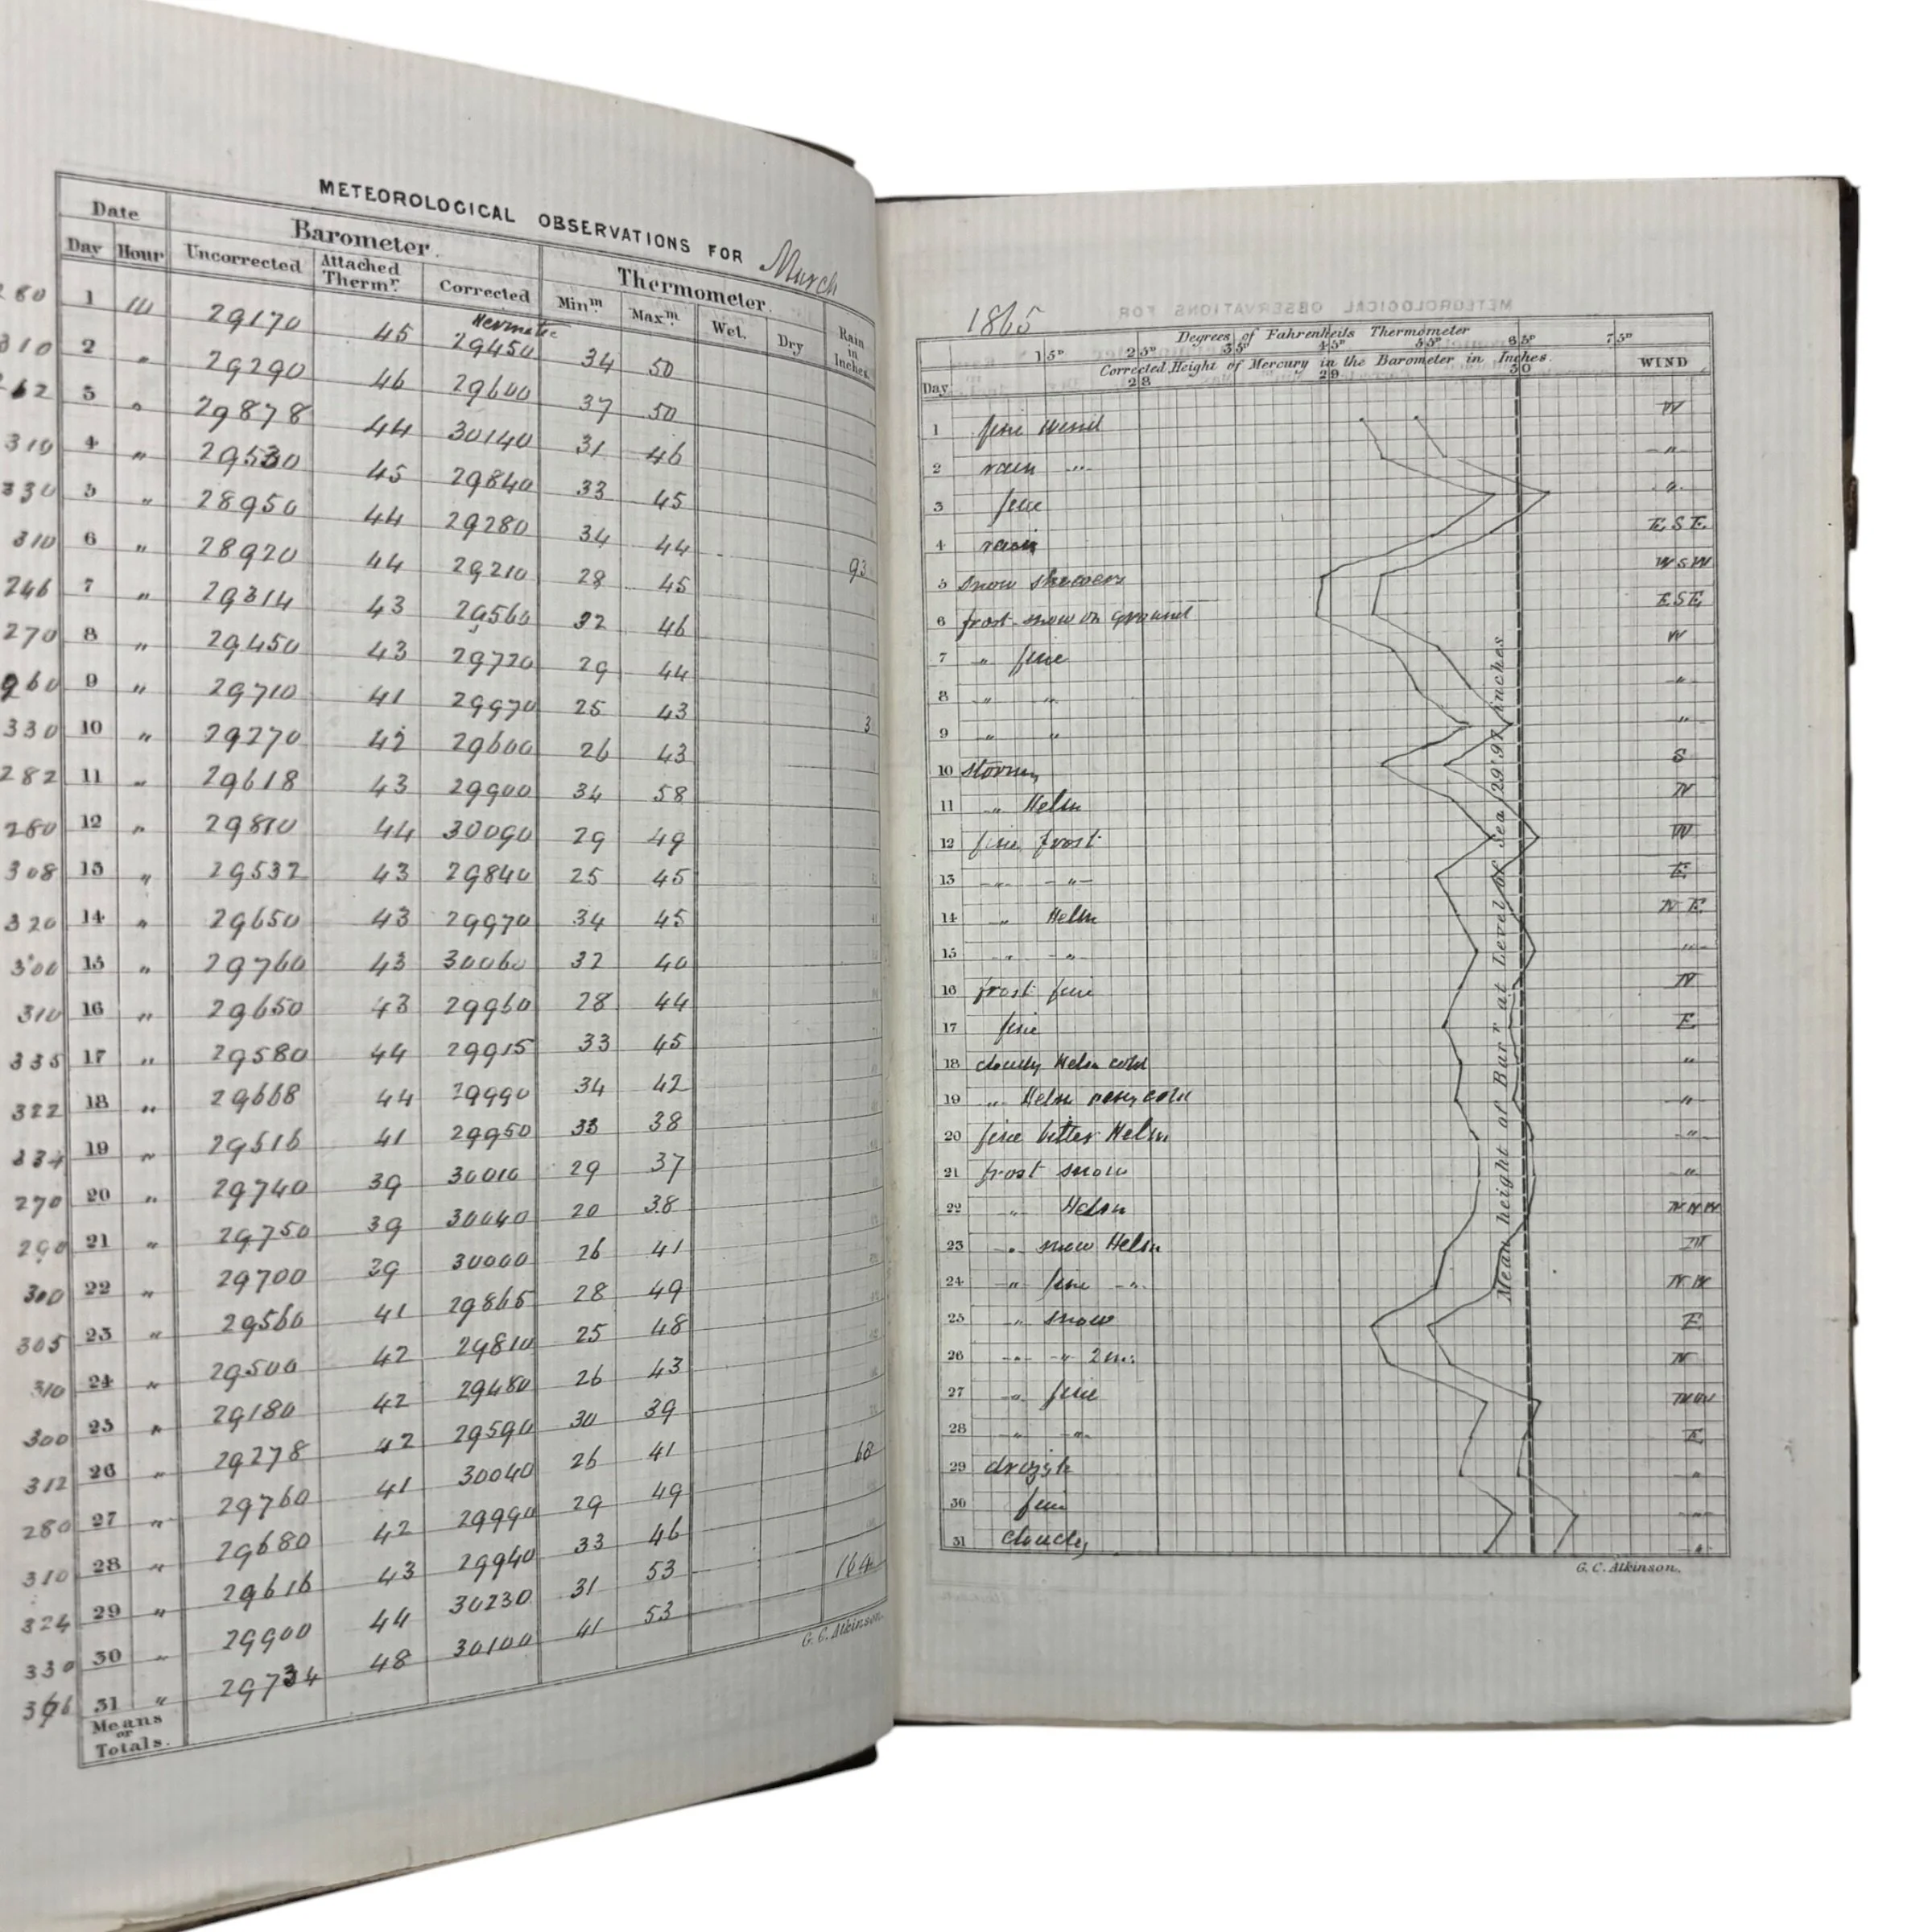 METEOROLOGICAL OBSERVATIONS FOR March
Date Barometer. Thermometer. Rain in Inches.
Day Hour Uncorrected Attached Thermr. Corrected Minm. Maxm. Wet. Dry
280 1 29170 45 29450 34 50
310 2 " 29290 46 29600 37 50
262 3 " 29878 44 30140 31 46
310 4 " 29530 45 29840 33 45
330 5 " 28950 44 29280 34 44
310 6 " 28920 44 29210 28 45 93
246 7 " 29314 43 29560 32 46
270 8 " 29450 43 29720 29 44
260 9 " 29710 41 29970 25 43 3
330 10 " 29270 42 29600 26 43
282 11 " 29618 43 29900 34 58
280 12 " 29810 44 30090 29 49
308 13 " 29532 43 29840 25 45
320 14 " 29650 43 29970 34 45
300 15 " 29760 43 30060 32 40
310 16 " 29650 43 29960 28 44
335 17 " 29580 44 29915 33 45
322 18 " 29668 44 29990 34 42
334 19 " 29616 41 29950 33 38
270 20 " 29740 39 30010 29 37
290 21 " 29750 39 30040 20 38
300 22 " 29700 39 30000 26 41
305 23 " 29560 41 29865 28 49
310 24 " 29500 42 29810 25 48
300 25 " 29180 42 29480 26 43
312 26 " 29278 42 29590 30 39
280 27 " 29760 41 30040 26 41 68
310 28 " 29680 42 29990 29 49
324 29 " 29616 43 29940 33 46
330 30 " 29900 44 30230 31 53
366 31 " 29734 48 30100 41 53 164
Means or Totals.
G. C. Atkinson.
1865
Degrees of Fahrenheits Thermometer
15° 25° 35° 45° 55° 65° 75°
Corrected Height of Mercury in the Barometer in Inches.
Day 28 29 30 WIND
1 fine Wind W
2 rain " "
3 fine "
4 rain E S E
5 Snow showers W S W
6 frost snow on ground E S E
7 " fine W
8 " " "
9 " " "
10 stormy S
11 " Helm N
12 fine frost W
13 " " E
14 " Helm N E
15 " " "
16 frost fine N
17 fine E
18 cloudy Helm cold "
19 " Helm very cold "
20 fine bitter Helm "
21 frost snow "
22 " Helm N N W
23 " snow Helm
24 " fine " N W
25 " snow E
26 " " 2 in: N
27 " fine
28 " " E
29 drizzle "
30 fine "
31 cloudy "
Mean height of Barr at Level of Sea 29'97 Inches
G. C. Atkinson.